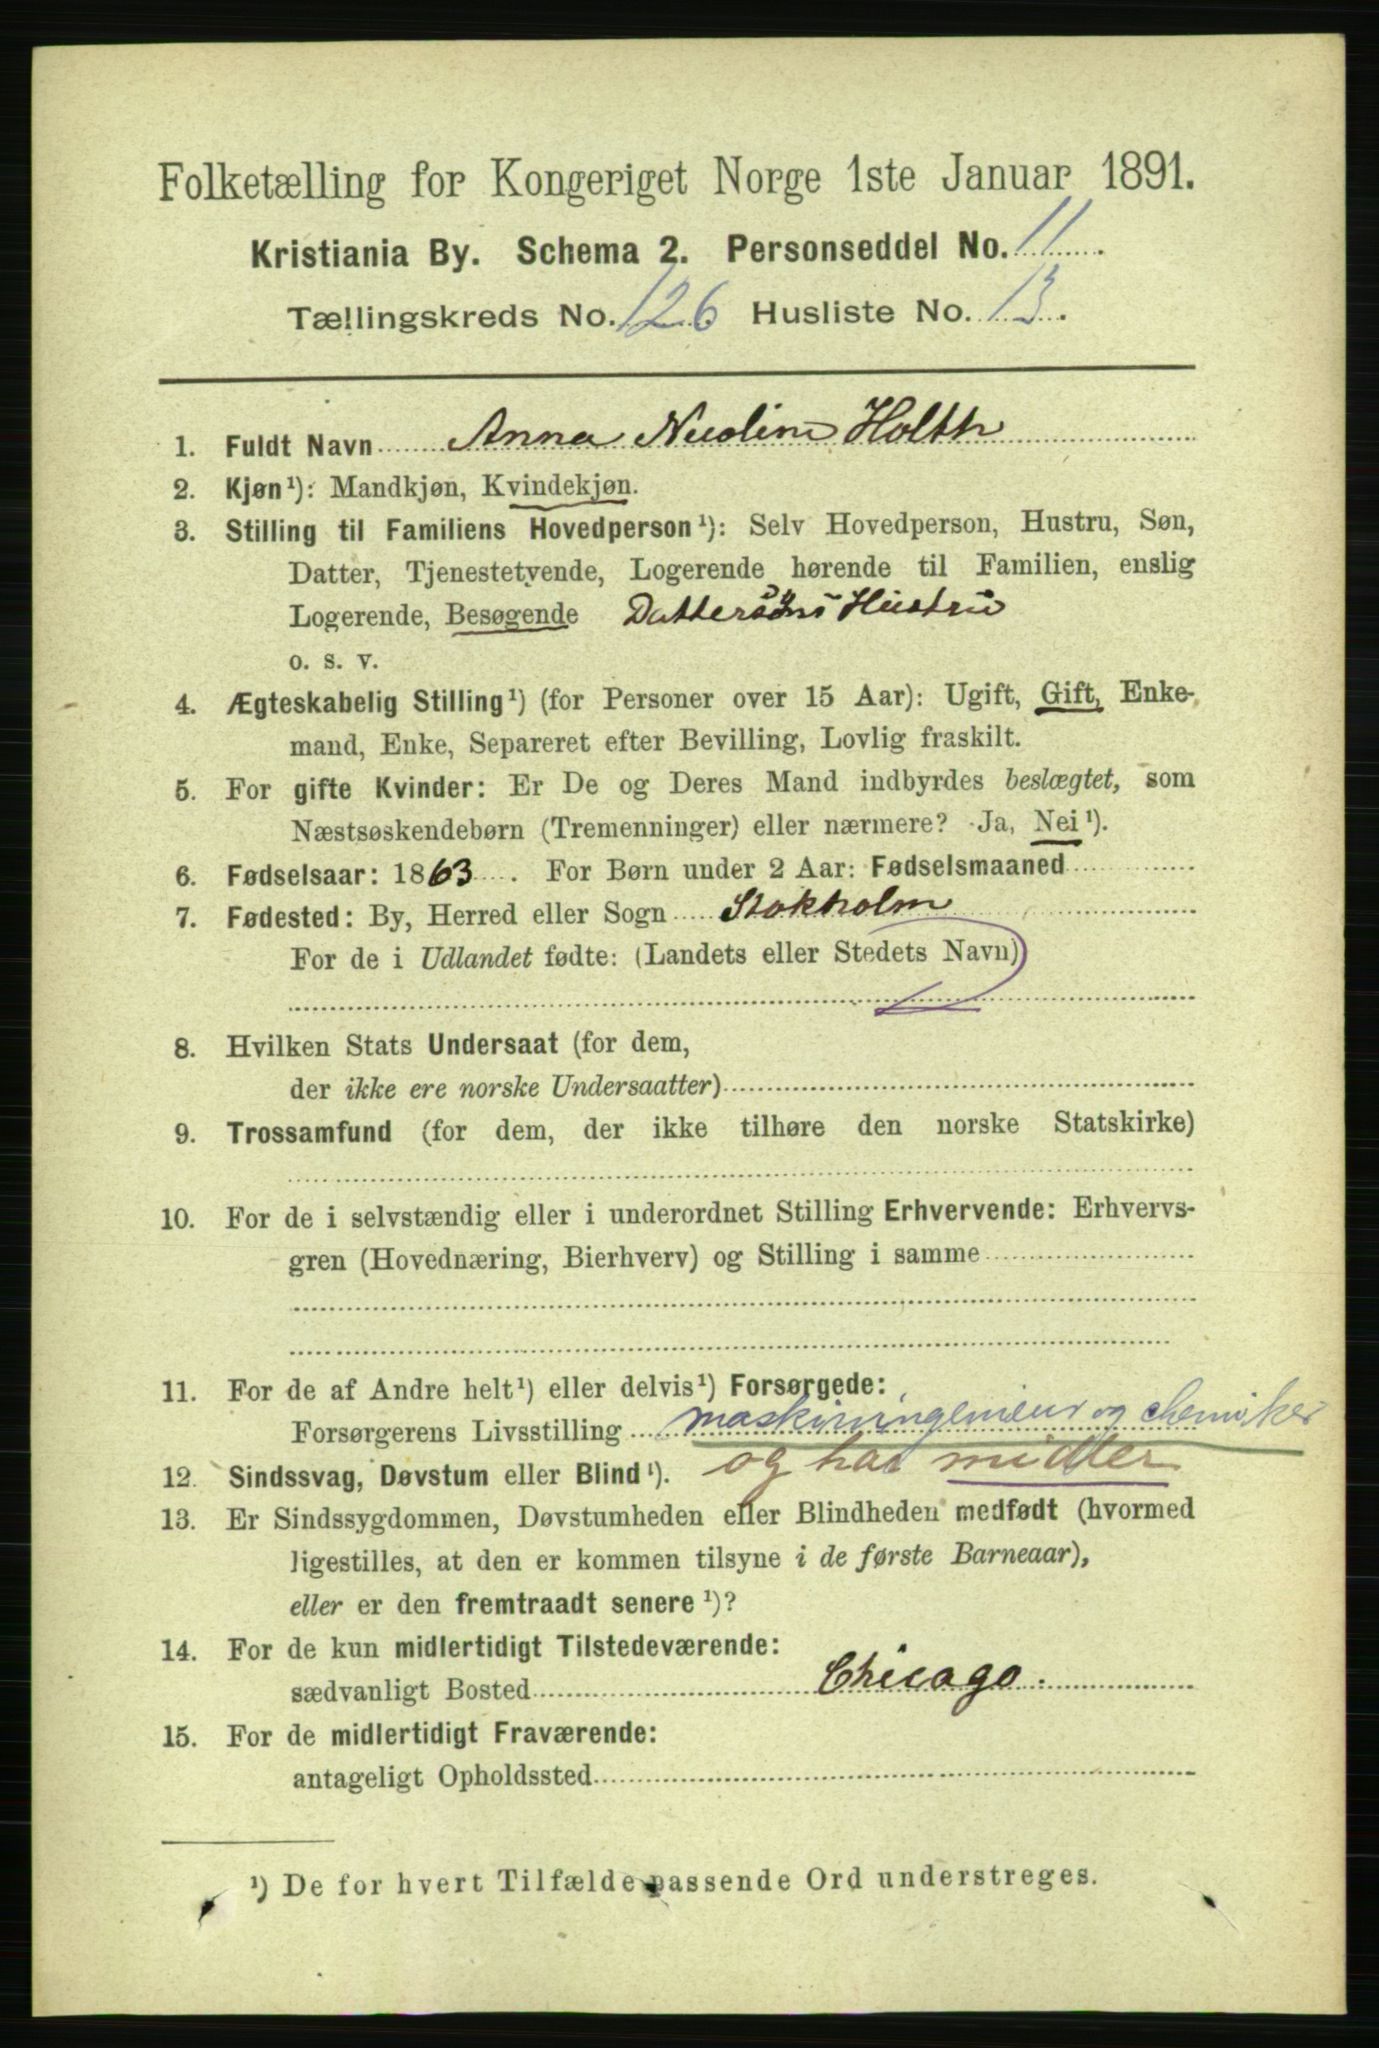 Folketælling for Kongeriget Norge 1ste Januar 1891.
Kristiania By. Schema 2. Personseddel No. 11.
Tællingskreds No. 126 Husliste No. 13.
1. Fuldt Navn Anna Holth
2. Kjøn¹): Mandkjøn, Kvindekjøn.
3. Stilling til Familiens Hovedperson¹): Selv Hovedperson, Hustru, Søn,
Datter, Tjenestetyende, Logerende hørende til Familien, enslig
Logerende, Besøgende Dattersøns Hustru
o. s. v.
4. Ægteskabelig Stilling¹) (for Personer over 15 Aar): Ugift, Gift, Enke-
mand, Enke, Separeret efter Bevilling, Lovlig fraskilt.
5. For gifte Kvinder: Er De og Deres Mand indbyrdes beslægtet, som
Næstsøskendebørn (Tremenninger) eller nærmere? Ja, Nei¹).
6. Fødselsaar: 1863. For Børn under 2 Aar: Fødselsmaaned
7. Fødested: By, Herred eller Sogn Stokholm
For de i Udlandet fødte: (Landets eller Stedets Navn)
8. Hvilken Stats Undersaat (for dem,
der ikke ere norske Undersaatter)
9. Trossamfund (for dem, der ikke tilhøre den norske Statskirke)
10. For de i selvstændig eller i underordnet Stilling Erhvervende: Erhvervs-
gren (Hovednæring, Bierhverv) og Stilling i samme
11. For de af Andre helt¹) eller delvis¹) Forsørgede:
Forsørgerens Livsstilling maskiningenieur og chemiker
12. Sindssvag, Døvstum eller Blind¹). og har midler
13. Er Sindssygdommen, Døvstumheden eller Blindheden medfødt (hvormed
ligestilles, at den er kommen tilsyne i de første Barneaar),
eller er den fremtraadt senere¹)?
14. For de kun midlertidigt Tilstedeværende:
sædvanligt Bosted Chicago.
15. For de midlertidigt Fraværende:
antageligt Opholdssted
¹) De for hvert Tilfælde passende Ord understreges.